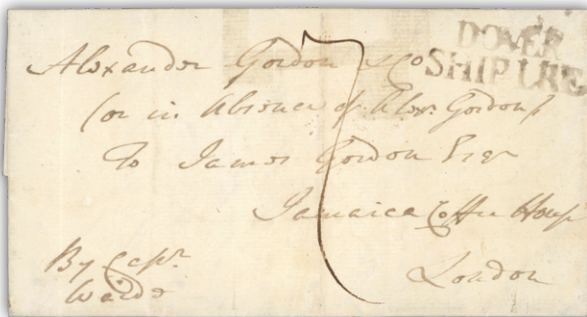 DOVER
SHIP LRE
Alexander Gordon & Co
(or in Absence of Alexr. Gordon)
To James Gordon Esqr
Jamaica Coffee House
London
By Capn.
7